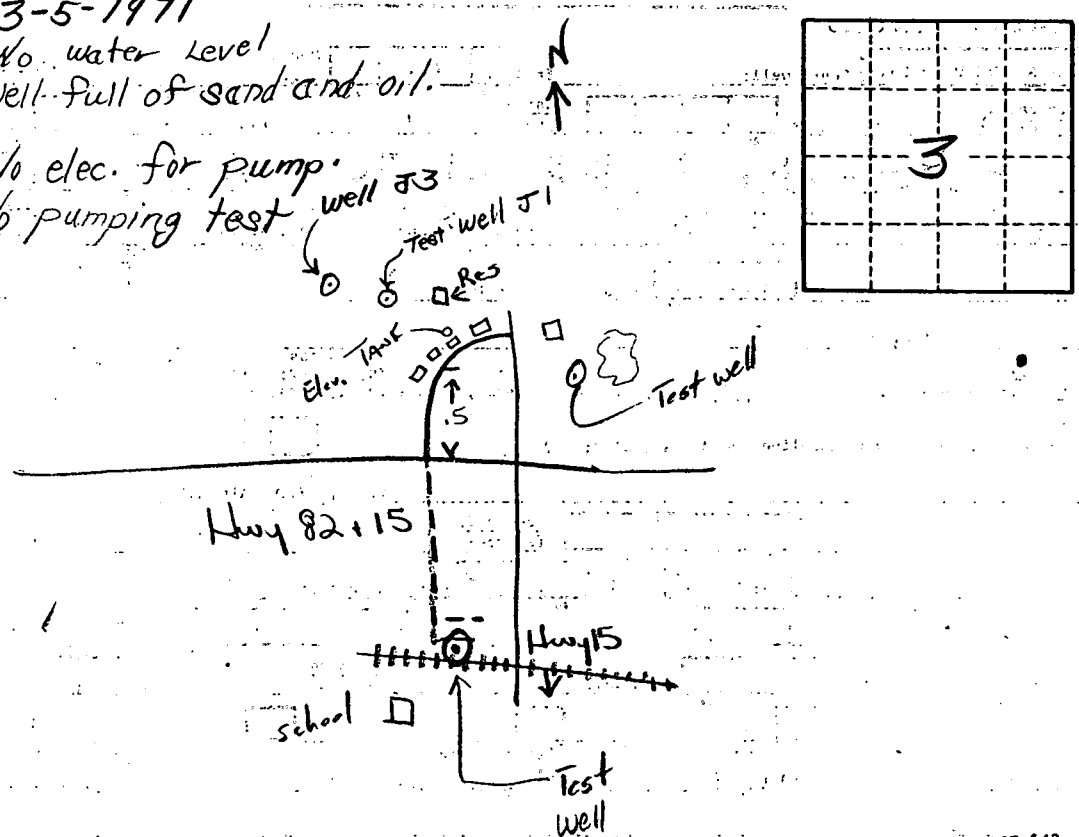 3-5-1971
No water Level
well full of sand and oil.
N
3
No elec. for pump.
No pumping test
well J3
Test well J1
Res
Elev. TANK
.5
Test well
Hwy 82 + 15
Hwy 15
school
Test
well